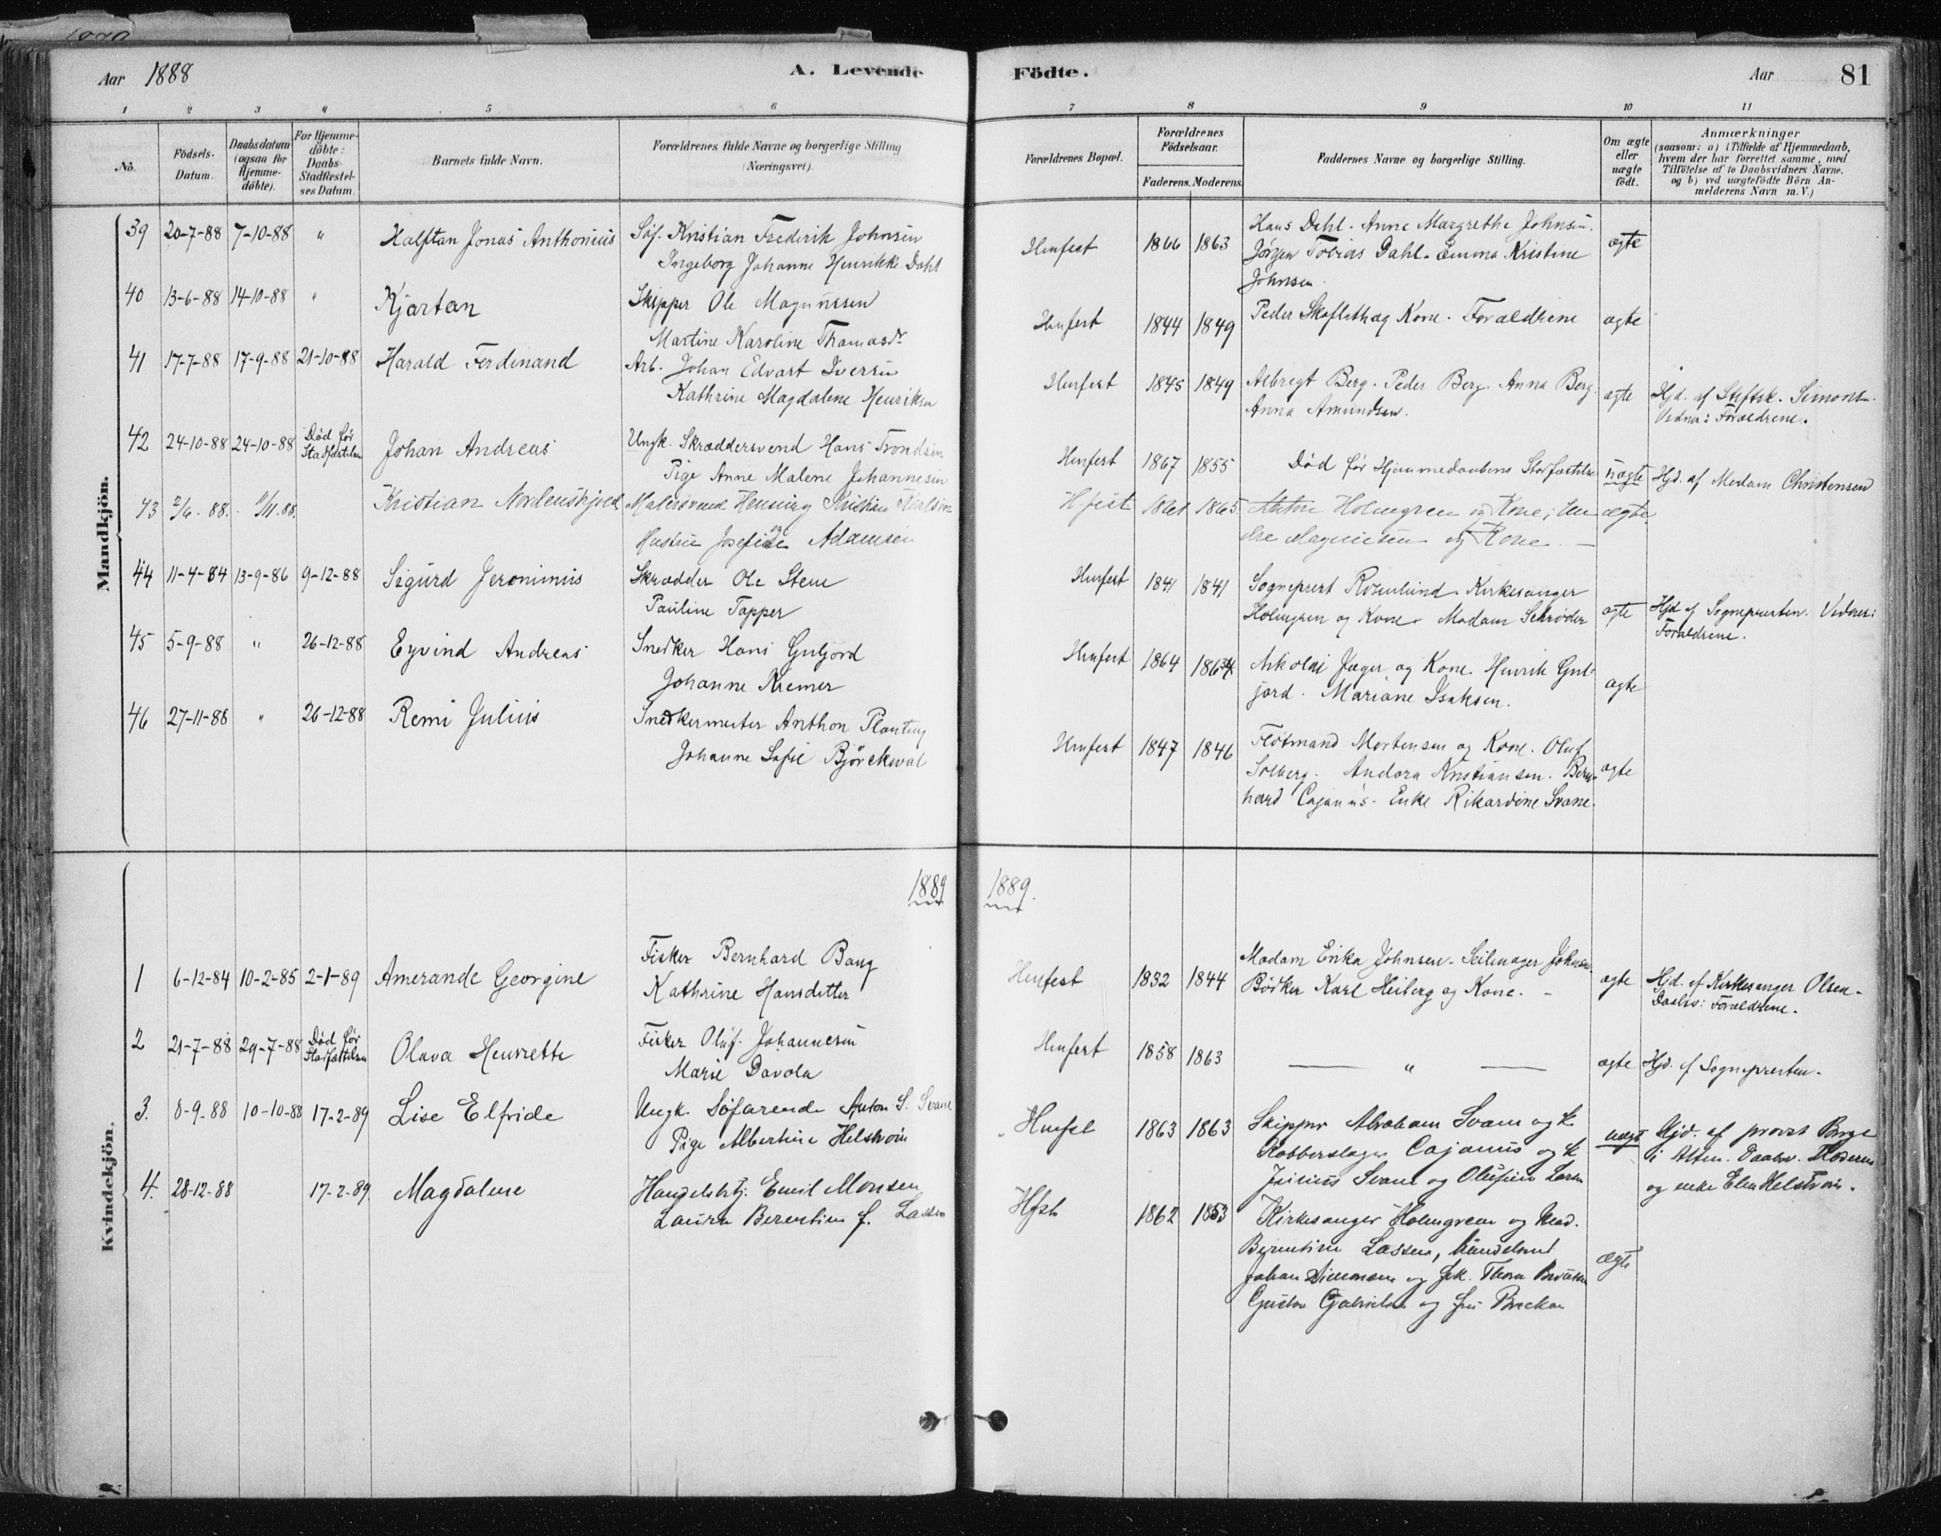 Aar 1888
A. Levende
Födte.
Aar
81
1 2 3 4 5 6 7 8 9 10 11
No.
Födsels-Datum.
Daabsdatum (ogsaa for Hjemme-döbte).
For Hjemme-döbte: Daabs-Stadfæstel-ses Datum.
Barnets fulde Navn.
Forældrenes fulde Navne og borgerlige Stilling (Næringsvei).
Forældrenes Bopæl.
Forældrenes Födselsaar.
Faderens. Moderens.
Faddernes Navne og borgerlige Stilling.
Om ægte eller uægte födt.
Anmærkninger
(saasom: a) i Tilfælde af Hjemmedaab,
hvem der har forrettet samme, med
Tilföielse af to Daabsvidners Navne.
og b) ved uægtefödte Börn An-
melderens Navn m. V.)
Mandkjön.
39 20-7-88 7-10-88 " Halftan Jonas Anthonius Søf. Kristian Frederik Johnsen
Ingeborg Johanne Henrikke Dahl
Hmfest 1866 1863 Hans Dahl. Anne Margrethe Johnsen.
Jørgen Tobias Dahl. Emma Kristine
Johnsen.
ægte
40 13-6-88 14-10-88 " Kjartan Skipper Ole Magnussen
Martine Karoline Thomasdr
Hmfest 1844 1849 Peder Skoflethag Kone. Forældrene ægte
41 17-7-88 17-9-88 21-10-88 Harald Ferdinand Arb. Johan Edvart Iversen
Kathrine Magdalene Henriksen
Hmfest 1845 1849 Albregt Berg. Peder Berg. Anna Berg.
Anna Amundsen.
ægte Hjd. af Stiftsk. Simonsen.
Vidner: Forældrene.
42 24-10-88 24-10-88 Død før Stadfæstelsen Johan Andreas Ungk. Skræddersvend Hans Trondsen
Pige Anne Malene Johannesen
Hmfest 1867 1855 Død før Hjemmedaabens Stadfæstelse uægte Hjd. af Madam Christensen
43 2/6-88. 4/11.88. Kristian Nordenskjold Malersvend Henning Kristian
Hustru Josefine Adamsen
Hfest 1861 1865 Anton Holmgren og Kone;
Magnussen og Kone. —
ægte
44 11-4-84 13-9-86 9-12-88 Sigurd Jeronimus Skrædder Ole Stene
Pauline Tapper
Hmfest 1841 1841 Sogneprest Rosenlund. Kirkesanger
Holmgren og Kone. Madam Schrøder
ægte Hjd af Sognepresten. Vidner:
Forældrene.
45 5-9-88 " 26-12-88 Eyvind Andreas Snedker Hans Guljord
Johanne Kremer
Hmfest 1864 1864 Nikolai Jæger og Kone. Henrik Gul-
jord. Mariane Isaksen.
ægte
46 27-11-88 " 26-12-88 Remi Julius Snedkermester Anthon Planting
Johanne Sofie Björckwal
Hmfest 1847 1846 Fløtmand Mortensen og Kone. Oluf
Solberg. Andora Kristiansen. Bern-
hard Cajanus. Enke Rikardine Svane.
ægte
1889 1889.
Kvindekjön.
1 6-12-84 10-2-85 2-1-89 Amerande Georgine Fisker Bernhard Bang
Kathrine Hansdatter
Hmfest 1832 1844 Madam Erika Johnsen. Seilmager Johnsen
Bödker Karl Heiberg og Kone. —
ægte Hjd. af Kirkesanger Olsen.
Daabsv: Forældrene.
2 21-7-88 29-7-88 Død før Stadfæstelsen Olava Henrette Fisker Oluf Johannesen
Marie Davola
Hmfest 1858 1863 — " — ægte Hjd. af Sognepresten.
3. 8-9-88 10-10-88 17-2-89 Lise Elfride Ungk. Søfarende Anton S. Svane
Pige Albertine Helstrøm
Hmfest 1863 1863 Skipper Abraham Svane og k.
Kobberslager Cajanus og k.
Svane og Olufine Larsen
uægte Hjd. af provst Berge
i Alten. Daabsv. Moderen
og enke Elen Helstrøm.
4. 28-12-88 17-2-89 Magdalene Handelsbtj. Emil Monsen
Laura Berentine f. Lassen
Hfst 1862 1853 Kirkesanger Holmgren og Mad.
Berentine Lassen,
Johan Simonsen og frk. Thora
Gustav Gabrielsen og fru
ægte